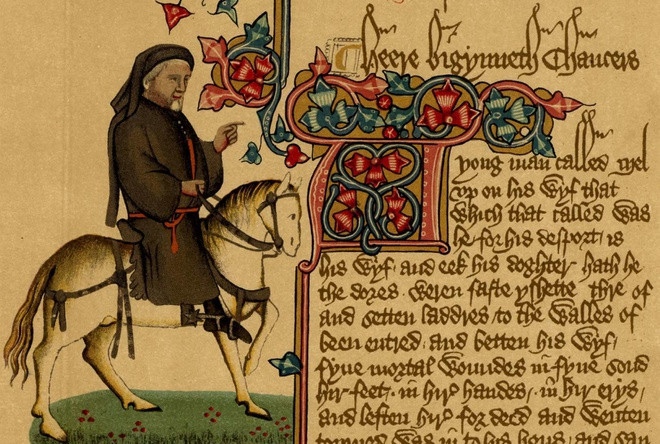 Heere bigynneth Chaucers
A yong man called Mel
vp on his wyf that
which that called was
he for his desport is
his wyf · and eek his doghter hath he
the dores weren faste yshette thre of
and setten laddres to the walles of
been entred · and betten his wyf /
fyue mortal woundes in fyue sond
hir feet · in hir handes · in hir erys ·
and leften hir for deed and wenten
torned was in to his hous and sau